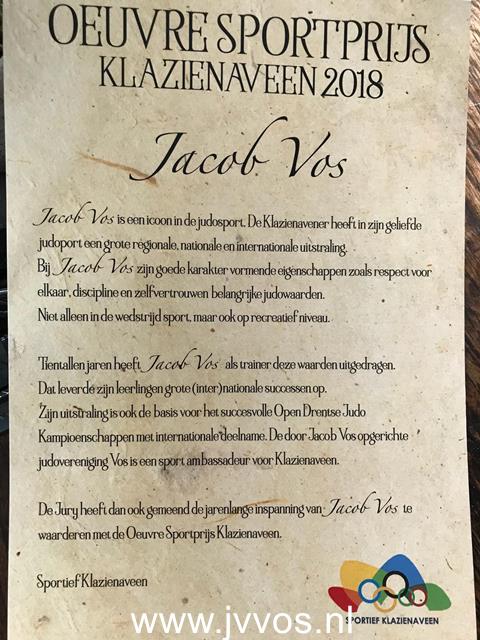 OEUVRE SPORTPRIJS
KLAZIENAVEEN 2018
Jacob Vos
Jacob Vos is een icoon in de judosport. De Klazienavener heeft in zijn geliefde
judoport een grote regionale, nationale en internationale uitstraling.
Bij Jacob Vos zijn goede karakter vormende eigenschappen zoals respect voor
elkaar, discipline en zelfvertrouwen belangrijke judowaarden.
Niet alleen in de wedstrijd sport, maar ook op recreatief niveau.
Tientallen jaren heeft Jacob Vos als trainer deze waarden uitgedragen.
Dat leverde zijn leerlingen grote (inter)nationale successen op.
Zijn uitstraling is ook de basis voor het succesvolle Open Drentse Judo
Kampioenschappen met internationale deelname. De door Jacob Vos opgerichte
judovereniging Vos is een sport ambassadeur voor Klazienaveen.
De Jury heeft dan ook gemeend de jarenlange inspanning van Jacob Vos te
waarderen met de Oeuvre Sportprijs Klazienaveen.
Sportief Klazienaveen
SPORTIEF KLAZIENAVEEN
www.jvvos.nl